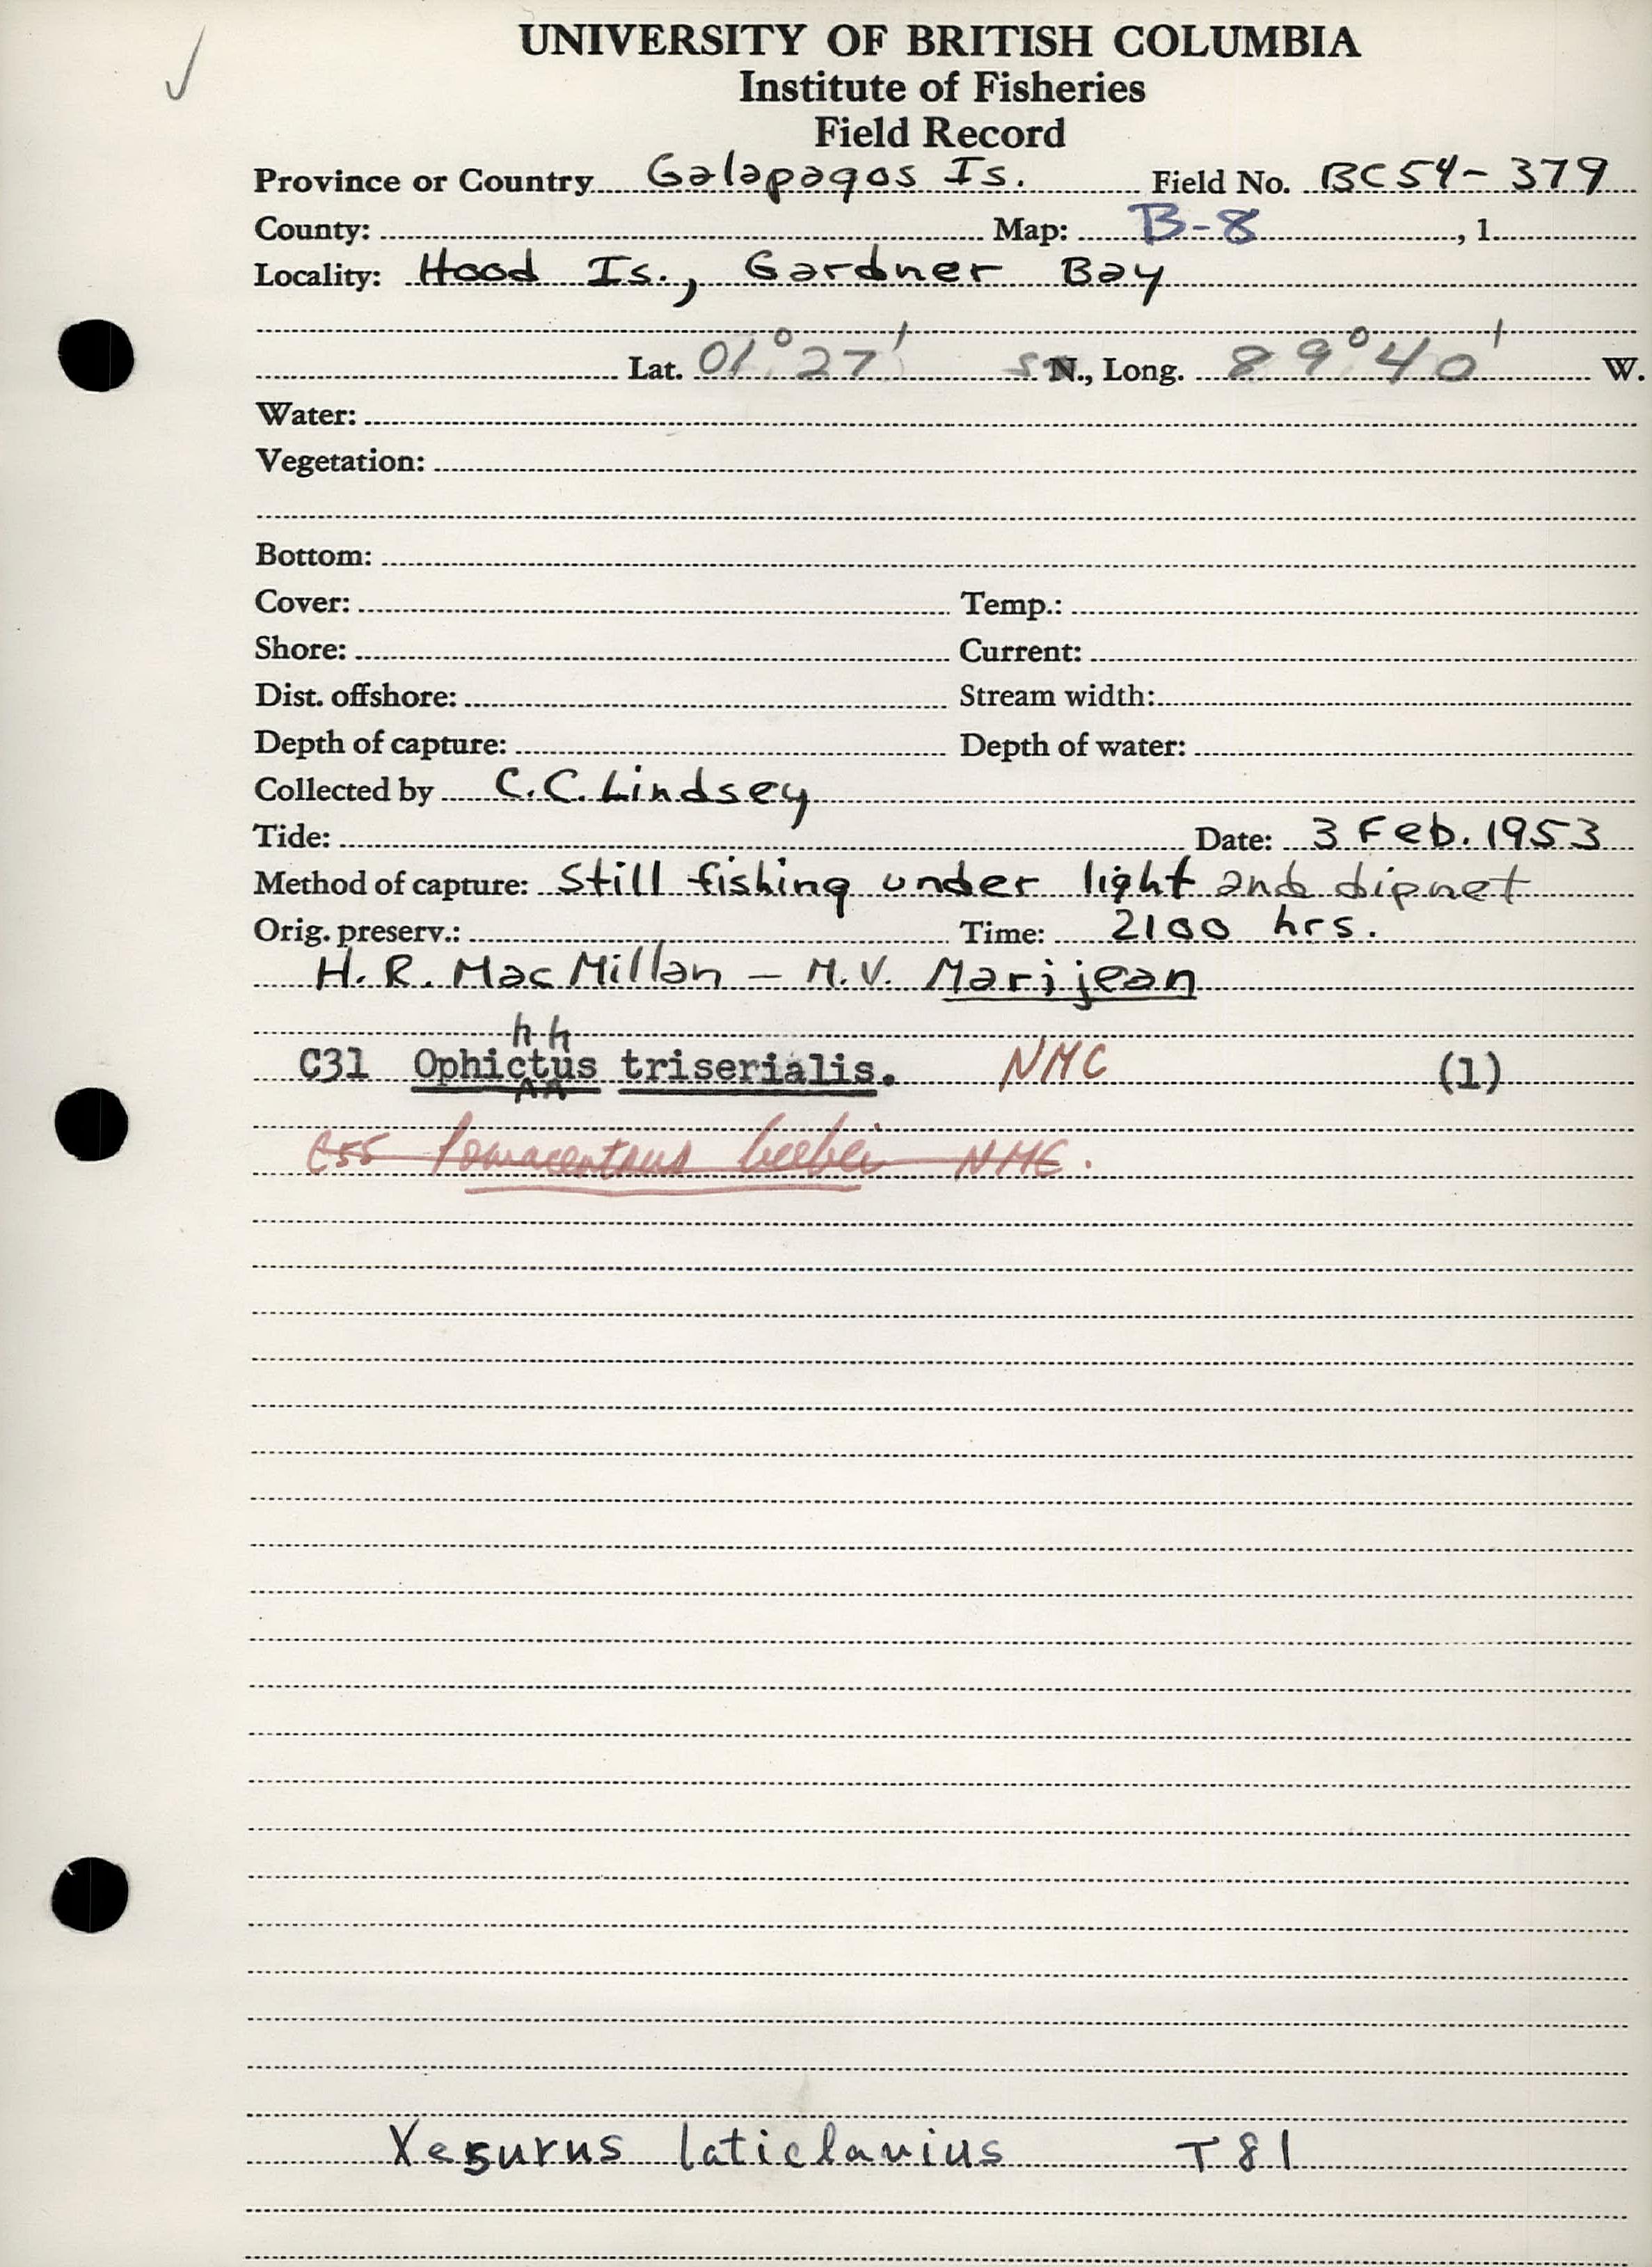 UNIVERSITY OF BRITISH COLUMBIA
Institute of Fisheries
Field Record
Province or Country Galapagos Is. Field No. BC54-379
County: Map: B-8, 1
Locality: Hood Is., Gardner Bay
Lat. 01°27' S N., Long. 89°40' W.
Water:
Vegetation:
Bottom:
Cover: Temp.:
Shore: Current:
Dist. offshore: Stream width:
Depth of capture: Depth of water:
Collected by C.C. Lindsey
Tide: Date: 3 Feb. 1953
Method of capture: Still fishing under light and dipnet
Orig. preserv.: Time: 2100 hrs.
H.R. MacMillan — M.V. Marijean
h h
C31 Ophictus triserialis. NMC (1)
C55 Pomacentrus beebei NMC.
Xesurus laticlavius T81